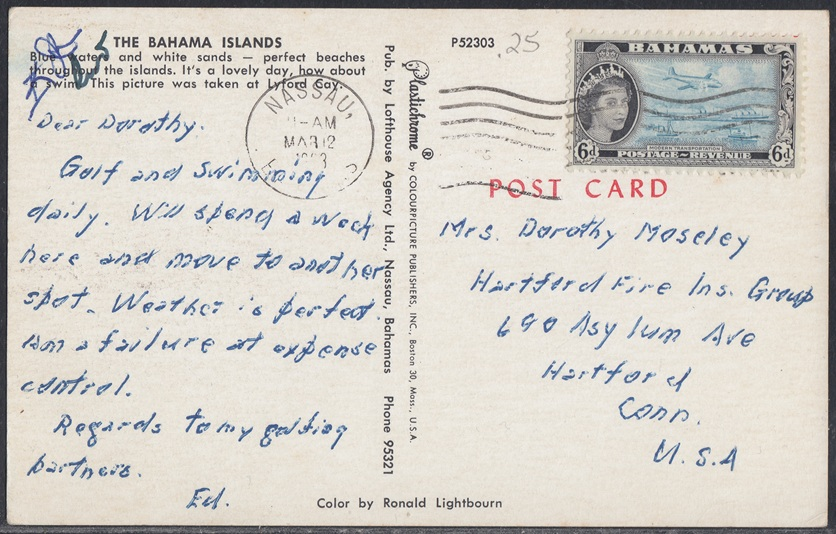 THE BAHAMA ISLANDS
Blue waters and white sands — perfect beaches
throughout the islands. It's a lovely day, how about
a swim? This picture was taken at Lyford Cay.
Dear Dorothy.
Golf and Swimming
daily. Will spend a week
here and move to another
spot. Weather is perfect.
am a failure at expense
control.
Regards to my golfing
partners.
Ed.
Color by Ronald Lightbourn
Pub. by Lofthouse Agency Ltd., Nassau, Bahamas Phone 95321
Plastichrome ® by COLOURPICTURE PUBLISHERS, INC., Boston 30, Mass., U.S.A.
P52303
.25
NASSAU,
-AM
MAR 12
BAHAMAS
6d
MODERN TRANSPORTATION
POSTAGE REVENUE
6d
POST CARD
Mrs. Dorothy Moseley
Hartford Fire Ins. Group
690 Asylum Ave
Hartford
Conn.
U.S.A